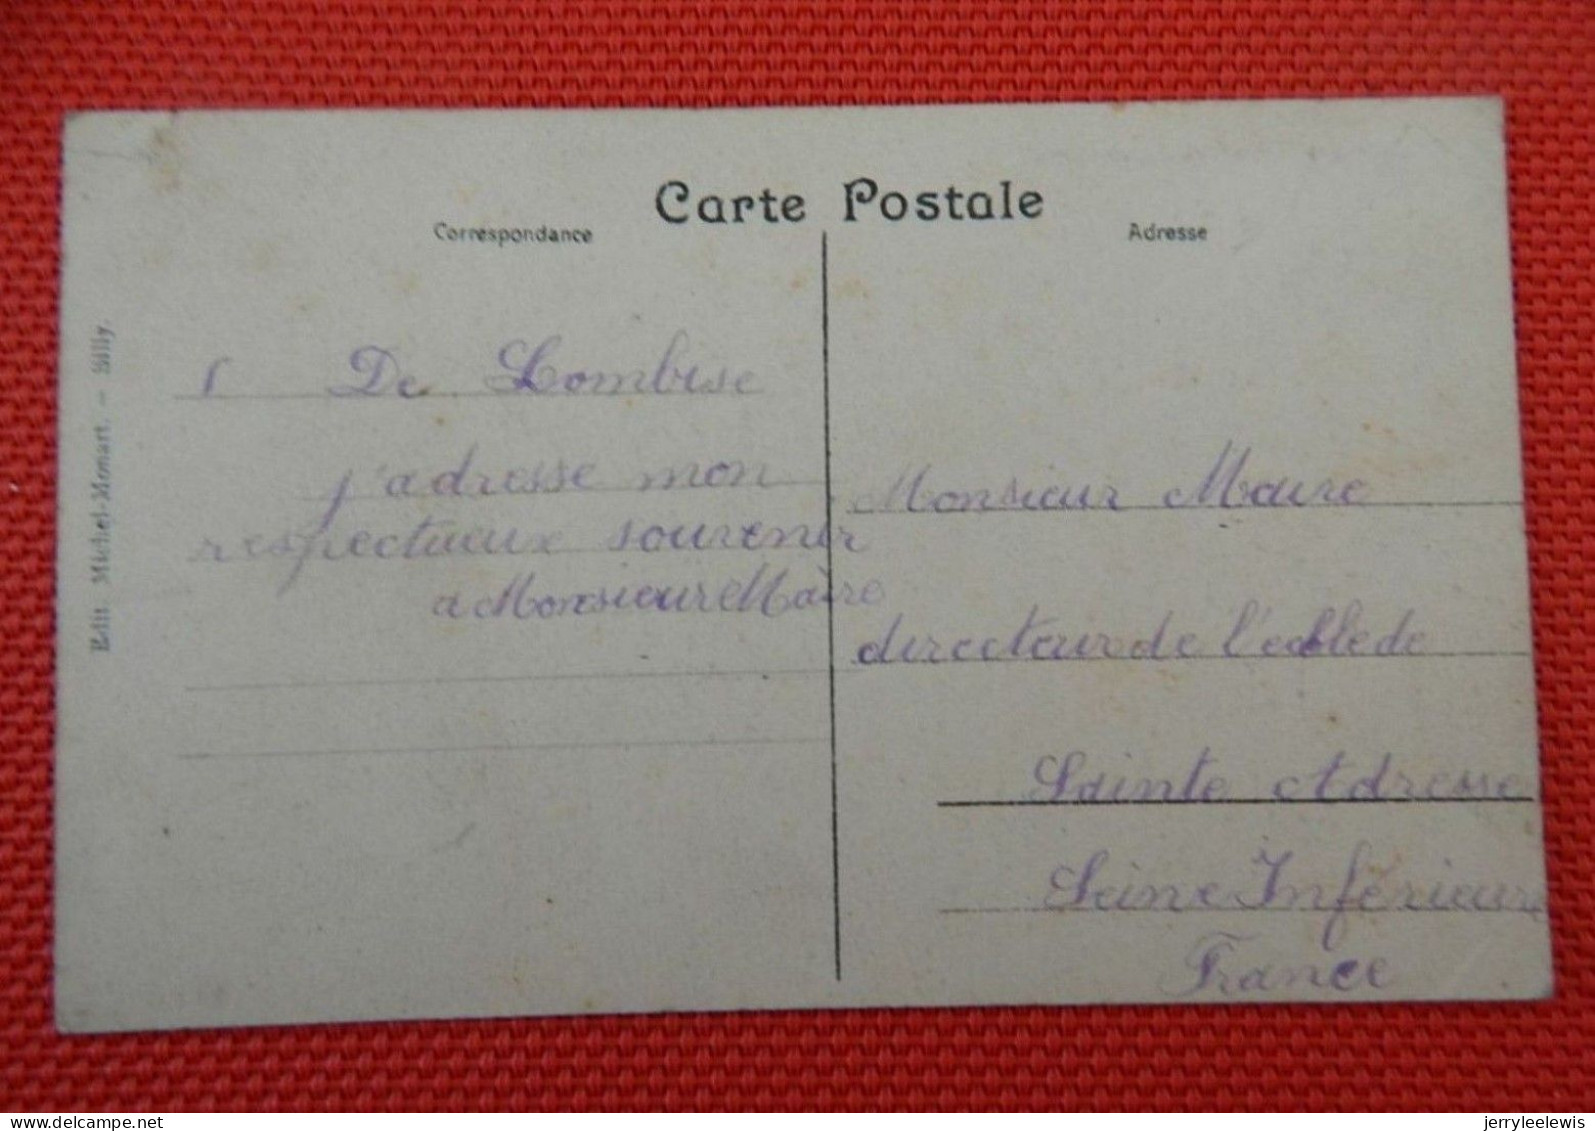 Carte Postale
Correspondance
Adresse
Edit. Michel-Monart. - Silly.
De Lombise
j'adresse mon
respectueux souvenir
a Monsieur Maire
Monsieur Maire
directeur de l'école de
Sainte Adresse
Seine Inférieure
France
jerryleelewis